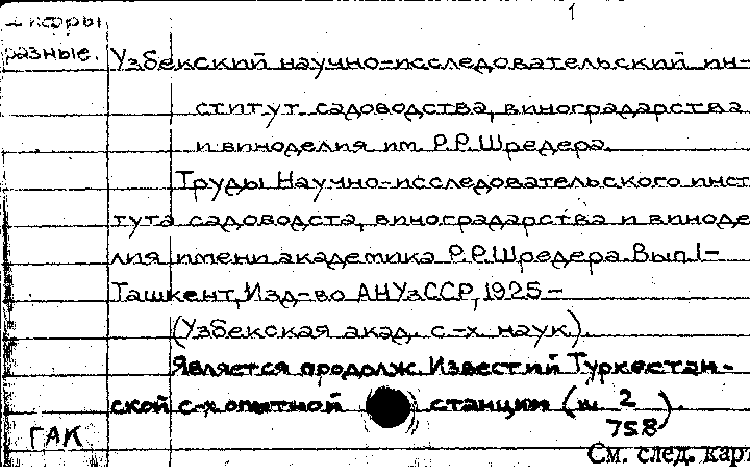 1
Шифры
разные.
Узбекский научно-исследовательский ин-
ститут садоводства, виноградарства
и виноделия им. Р.Р.Шредера.
Труды Научно-исследовательского инст
тута садоводста, виноградарства и виноде
лия имени академика Р.Р.Шредера. Вып.1-
Ташкент, Изд-во АНУзССР, 1925-
(Узбекская акад. с-х наук).
Является продолж. Известий Туркестан-
ской с-х опытной станции (ш. 2
758).
ГАК
См. след. кар